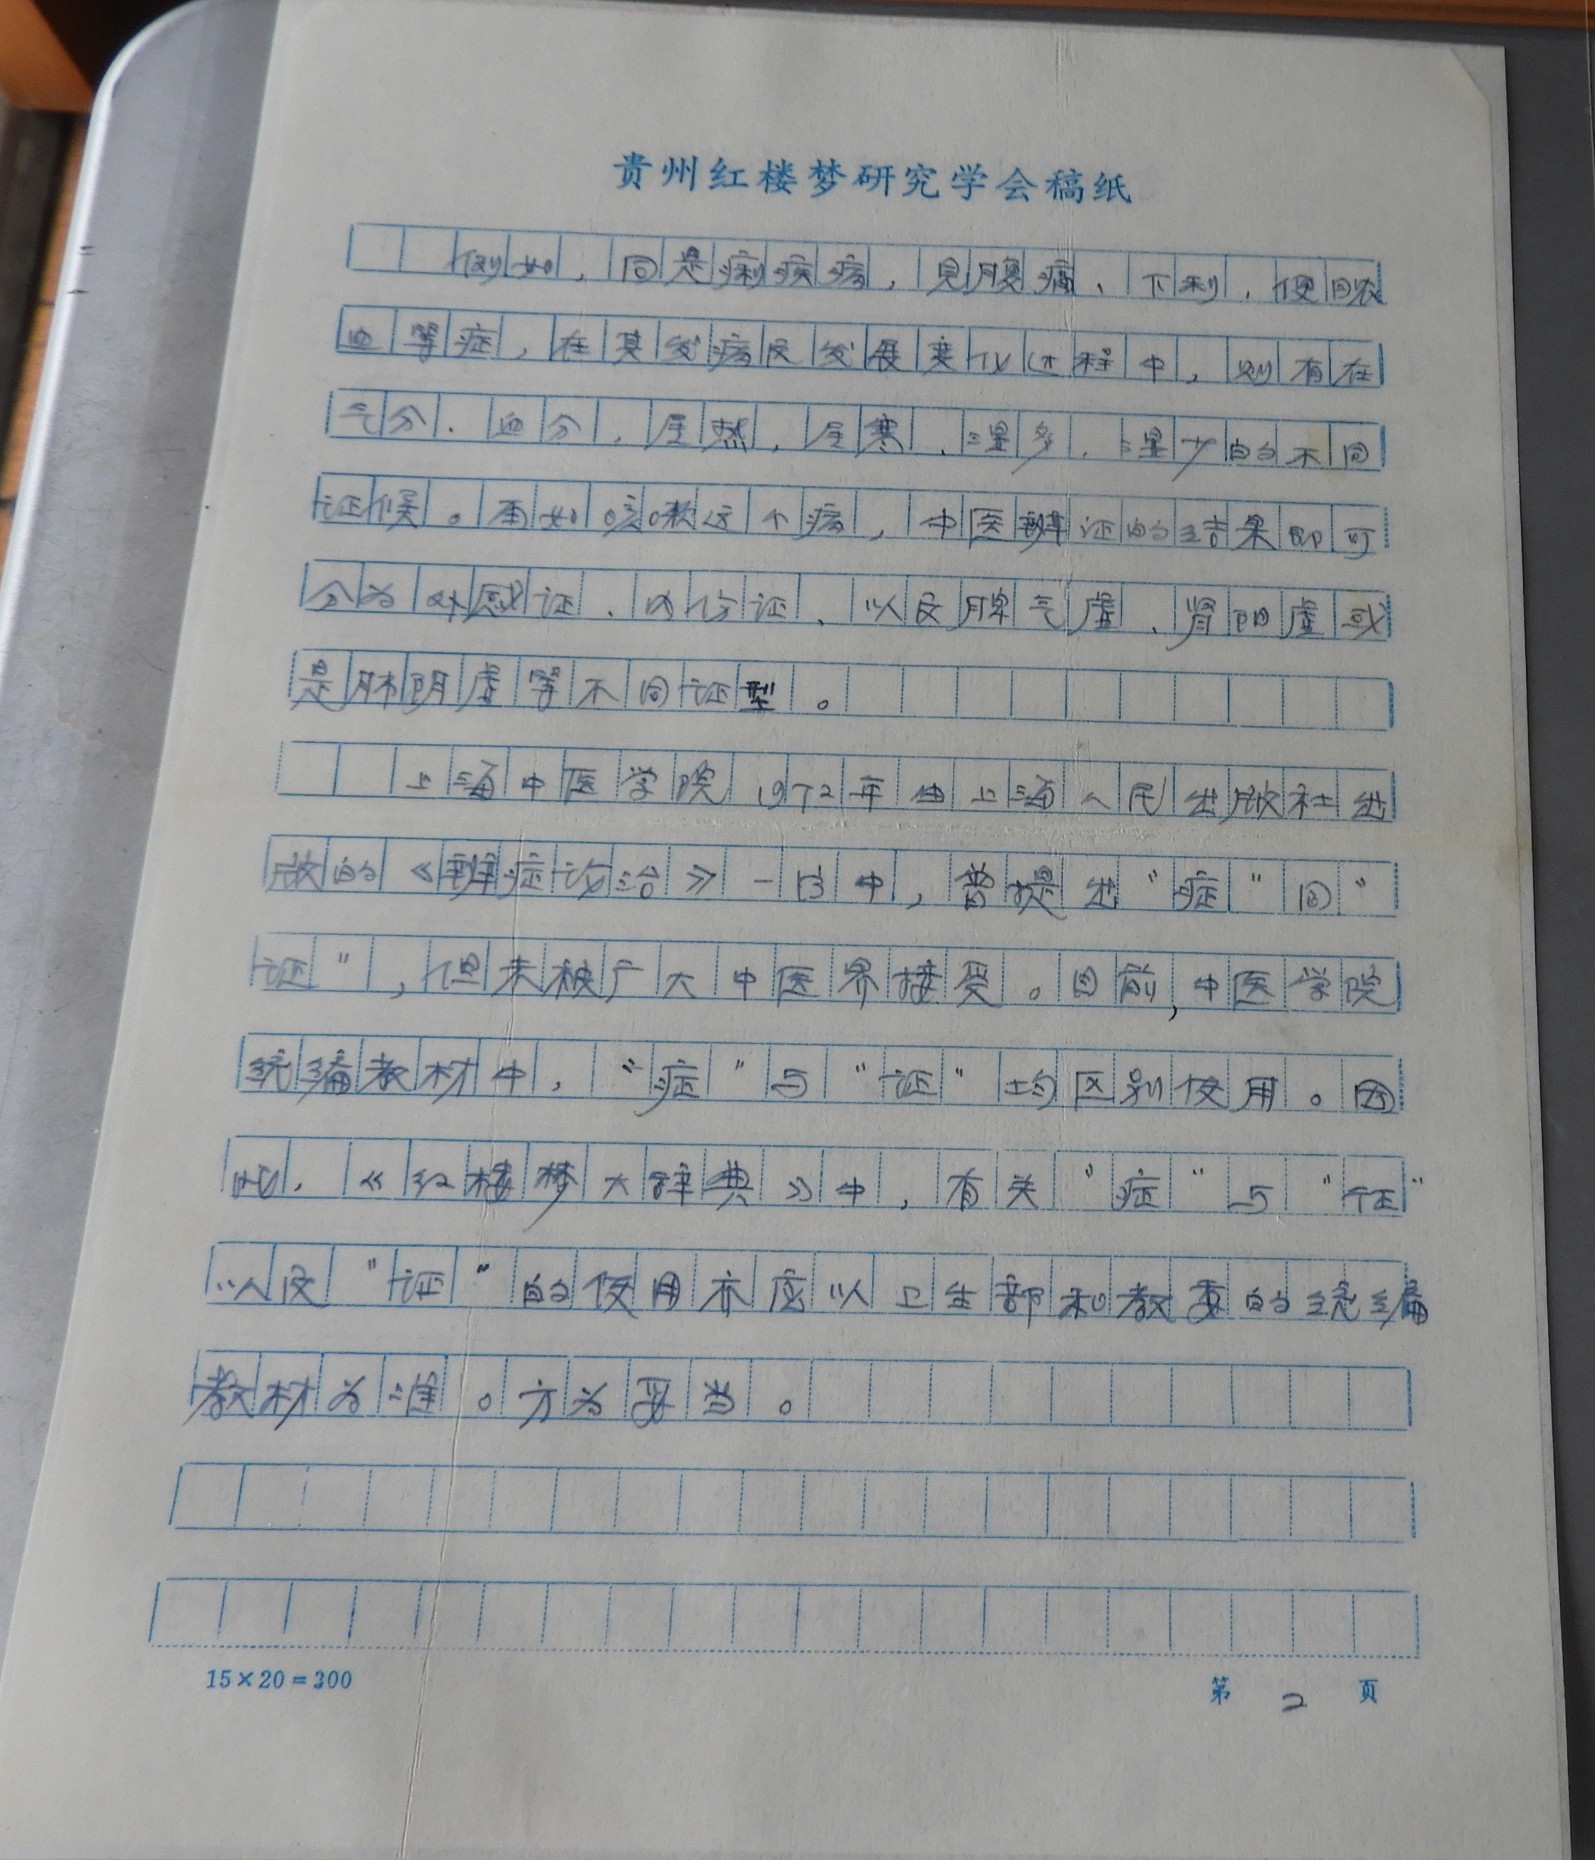 贵州红楼梦研究学会稿纸
例如，同是痢疾病，见腹痛、下利，便回脓
血等症，在其发病及发展变化过程中，则有在
气分、血分，属热，属寒、湿多，湿少的不同
证候。再如咳嗽这个病，中医辨证的结果即可
分为外感证、内伤证、以及脾气虚、肾阳虚或
是肺阴虚等不同证型。
上海中医学院1972年由上海人民出版社出
版的《辨症论治》一书中，曾提出“症”同“
证”，但未被广大中医界接受。目前，中医学院
统编教材中，“症”与“证”均区别使用。因
此，《红楼梦大辞典》中，有关“症”与“证”
以及“证”的使用亦应以卫生部和教委的统编
教材为准。方为妥当。
15×20=300
第 2 页